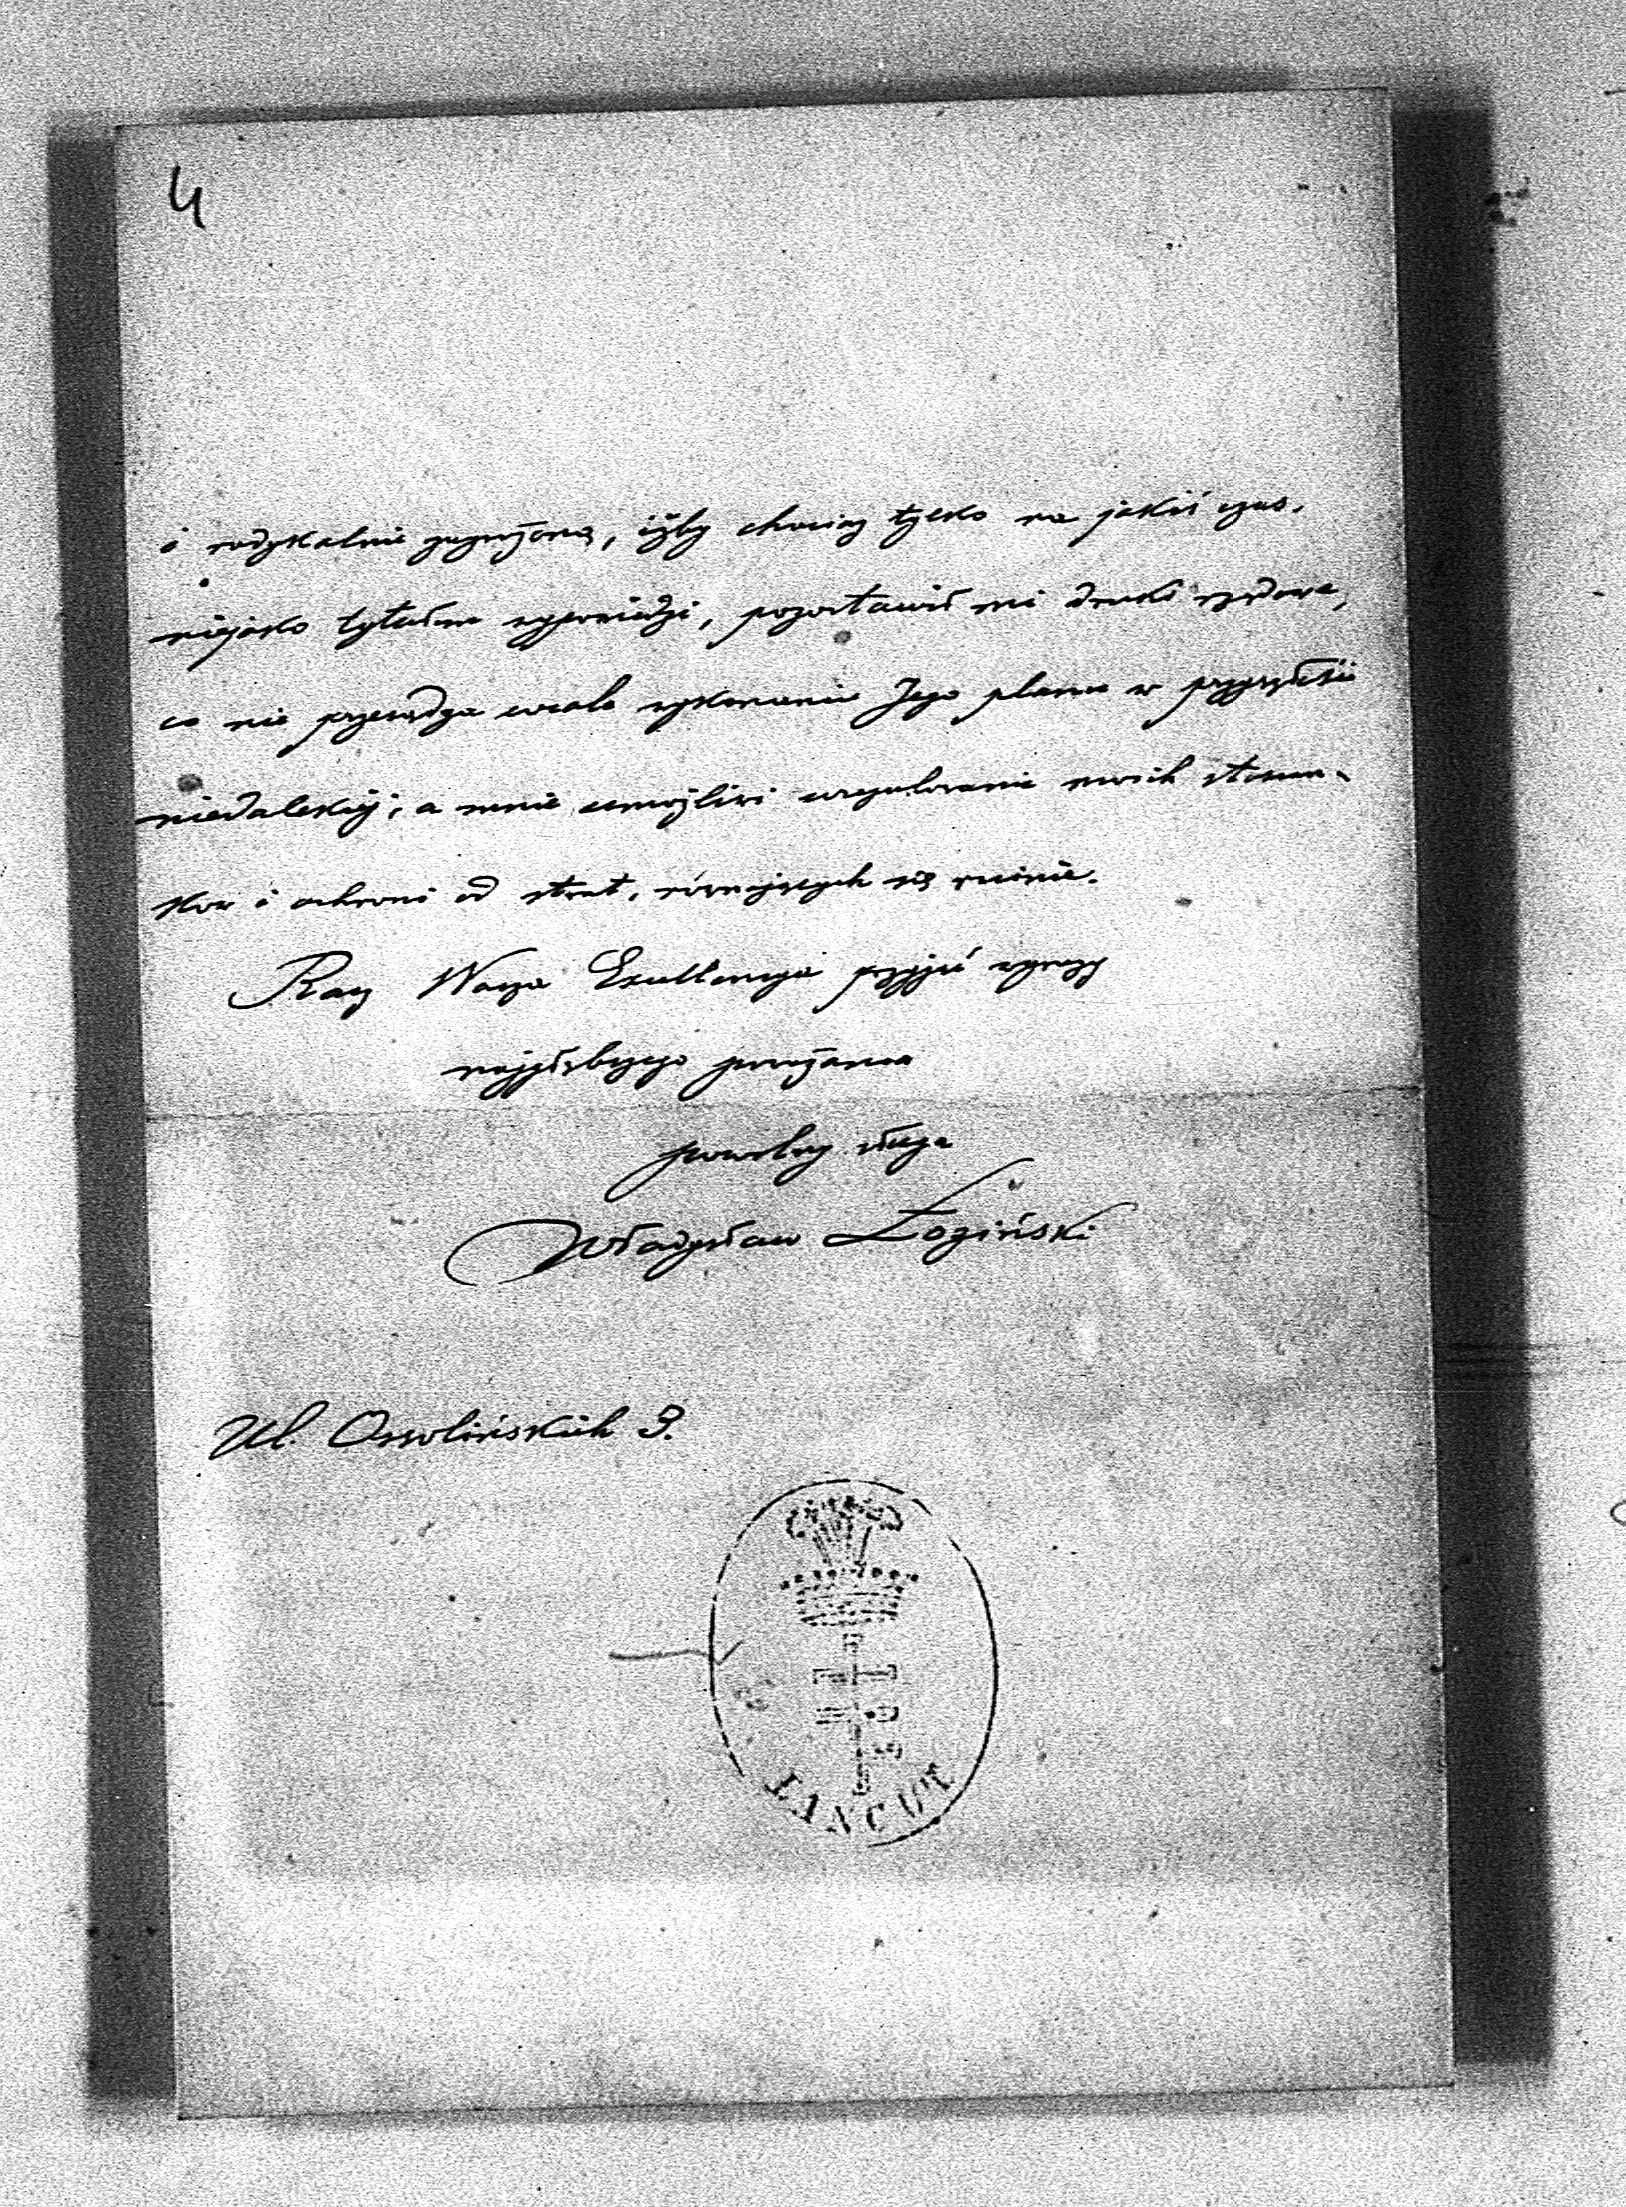 4
i radykalnie, iżby chociaż tylko na jakiś czas,
niejako tytułem wypowiedzi, pozostawił mi druki rządowe,
co nie przesądza wcale wykonania Jego planu w przyszłości
niedalekiej, a mnie umożliwi uregulowanie moich stosun-
ków i ochroni od strat, równających się ruinie.
Racz Wasza Excellencyo przyjąć wyrazy
najgłębszego poważania
powolny sługa
Władysław Łoziński
Ul. Ossolińskich 3.
ŁAŃCUT